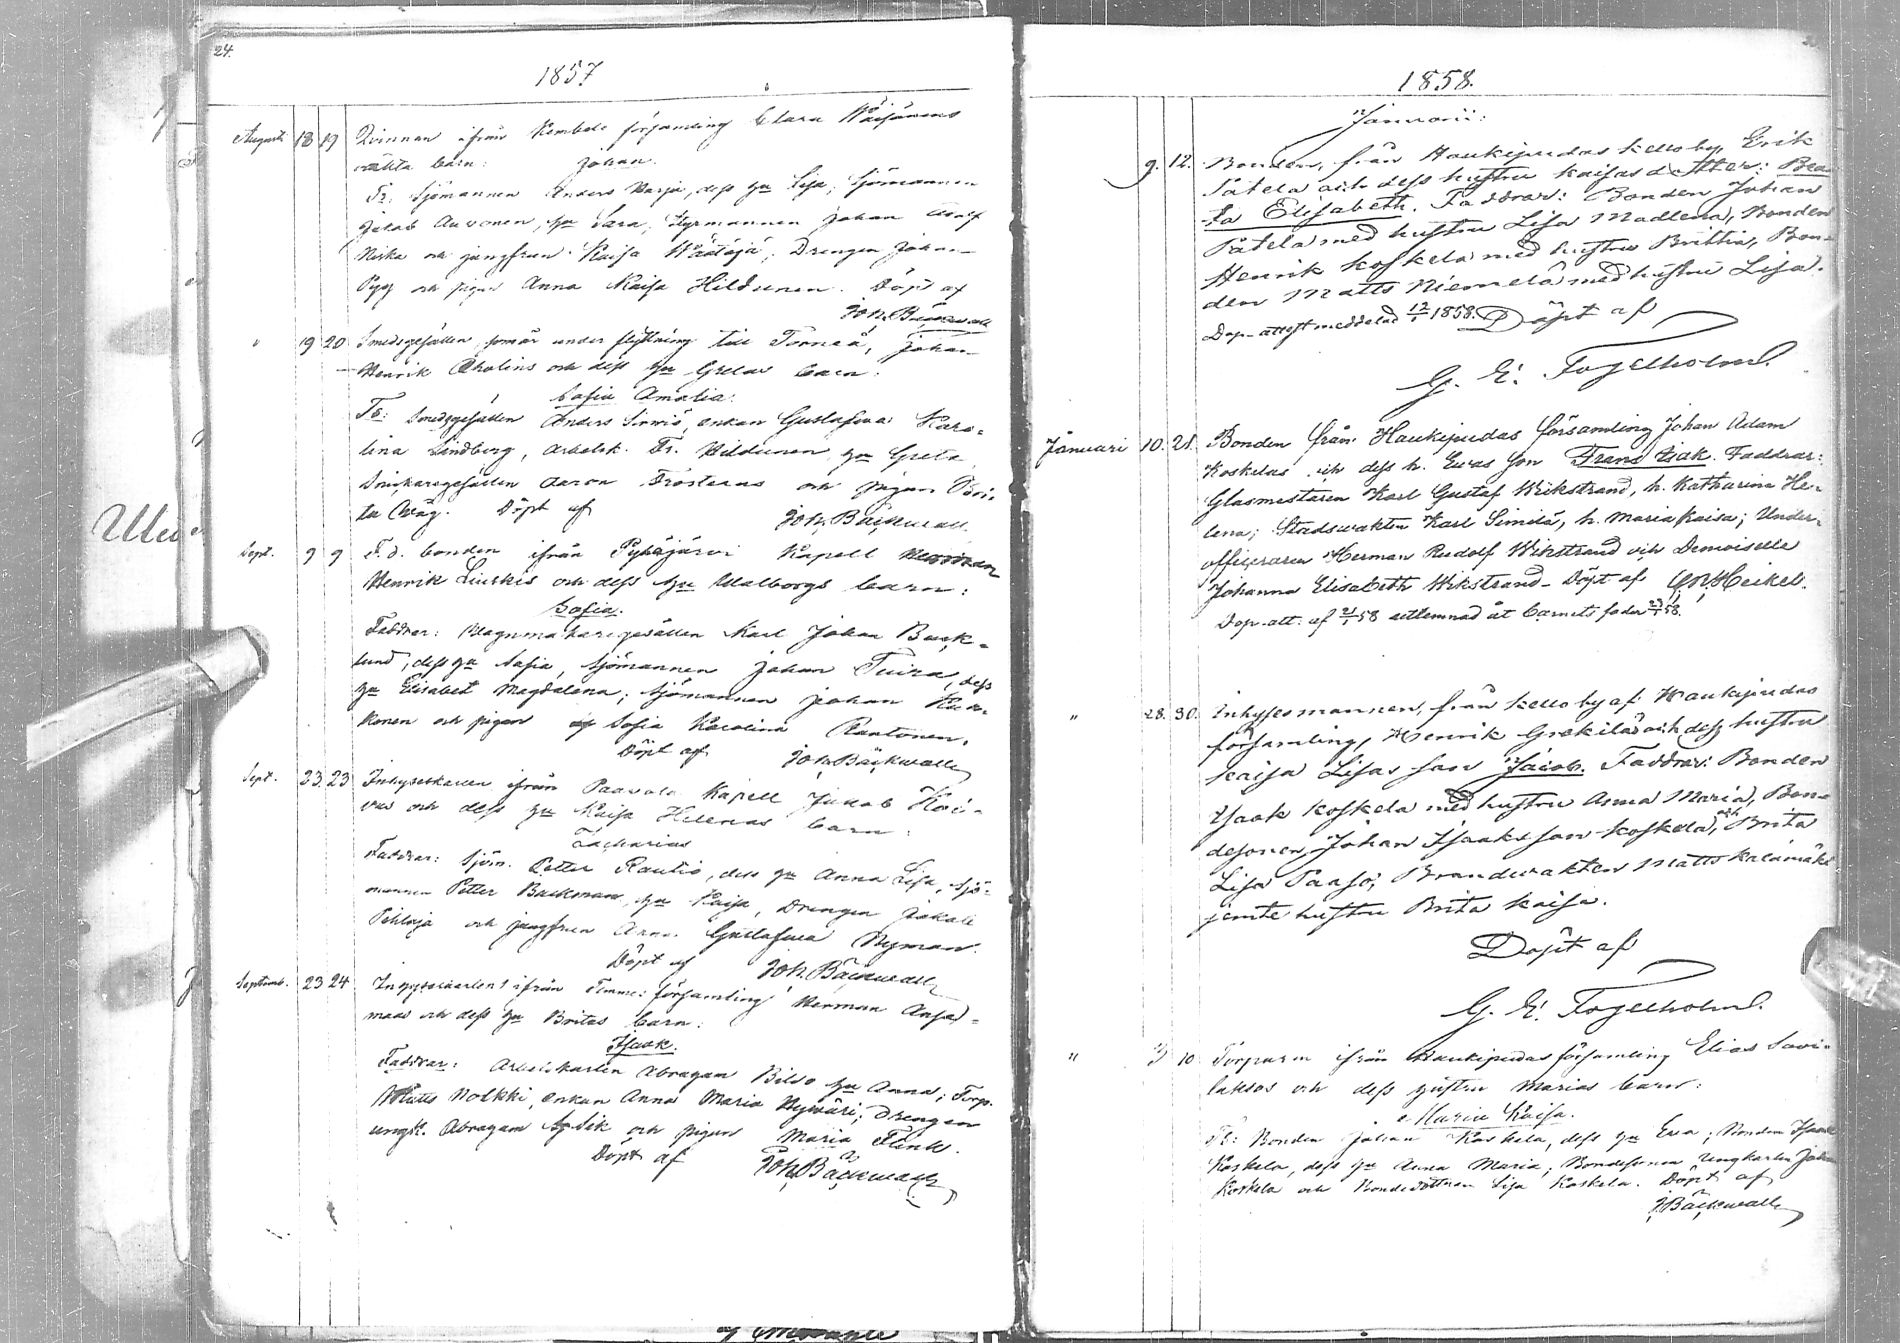 24.
1857
Augusti 18 19 Qvinnan ifrån Kembele församling Clara Väisänens
oäkta barn: Johan.
Fr: Sjömannen Anders Harja, dess hu Lisa; Sjömannen
Jakob Auvonen, hu Sara, Styrmannen Johan Adolf
Niska och jungfrun Kaisa Määtäjä; Drengen Johan
Pyy och pigan Anna Kaisa Hildunen. Döpt af
Joh. Bäckwall
" 19 20 Smedsgesällen, som är under flyttning till Torneå, Johan
Henrik Oholins och dess hu Gretas barn:
Sofia Amalia.
Fr: Smedsgesällen Anders Sirniö, enkan Gustafwa Karo-
lina Lindberg, arbetsk. Fr. Hildunen, hu Greta,
Snickaregesällen Aaron Frosterus och pigan
Döpt af
Joh. Bäckwall
Sept. 9 9 F.d. bonden ifrån Pyhäjärvi Kapell
Henrik Liuskis och dess hu Walborgs barn:
Sofia.
Faddrar: Wagnmakaregesällen Karl Johan Back-
lund, dess hu Sofia, Sjömannen Johan Tuira, dess
hu Elisabet Magdalena; Sjömannen Johan
konen och pigan Sofia Karolina Rantonen.
Döpt af Joh. Bäckwall
Sept. 23 23 Inhyseskarlen ifrån Paavola Kapell Jakob Koi-
vus och dess hu Kaisa Helenas barn:
Zacharias
Faddrar: Sjöm. Petter Rautio, dess hu Anna Lisa, Sjö-
mannen Petter Backman, hu Kaisa, Drengen Jakob
Pihlaja och jungfrun Anna Gustafwa Nyman.
Döpt af Joh. Bäckwall
Septemb. 23 24 Inhyseskarlens ifrån Temmes församling Herman Ansa-
maas och dess hu Britas barn:
Isaak.
Faddrar: Arbetskarlen Abraham Bilso hu Anna; Torp.
Matts Nolkki, enkan Anna Maria Mywäri; Drengen
ungk. Abraham och pigan Maria Flink.
Döpt af Joh. Bäckwall
1858.
Januarii:
9. 12. Bonden, från Haukipudas kello by, Erik
Pätela och dess hustru Kaisas dotter: Bea-
ta Elisabeth. Faddrar: Bonden Johan
Pätela med hustru Lisa Madlena, Bonden
Henrik Koskela med hustru Brittia, Bon-
den Matts Niemelä med hustru Lisa.
Dop-attest meddelad 12/1 1858. Döpt af
G. E. Fogelholm.
Januari 10. 21. Bonden från Haukipudas församling Johan Adam
Koskelas och dess h. Ewas son Frans Isak. Faddrar:
Glasmästaren Karl Gustaf Wikstrand, h. Katharina He-
lena; Stadswakten Karl Similä, h. Maria Kaisa; Under-
officeraren Herman Rudolf Wikstrand och Demoiselle
Johanna Elisabeth Wikstrand. Döpt af Heikel.
Dop-att. af 21/1 58 utlemnad åt barnets fader 23/1 58.
" 28. 30. Inhysesmannen, från Kello by af Haukipudas
församling, Henrik Grekilas och dess hustru
Kaisa Lisas son Jacob. Faddrar: Bonden
Isaak Koskela med hustru Anna Maria, Bon-
desonen Johan Isaaksson Koskela, och Brita
Lisa Paaso; Brandwakten Matts Kalamäki
jemte hustru Brita Kaisa.
Döpt af
G. E. Fogelholm.
" 10. Torparen ifrån Haukipudas församling Elias Savi-
laktos och dess hustru Marias barn:
Maria Kaisa.
Fr: Bonden Johan Koskela, dess hu Ewa; Bonden Isaak
Koskela, dess hu Anna Maria; Bondesonen Ungkarlen Johan
Koskela och Bondedottren Lisa Koskela. Döpt af
J. Bäckwall